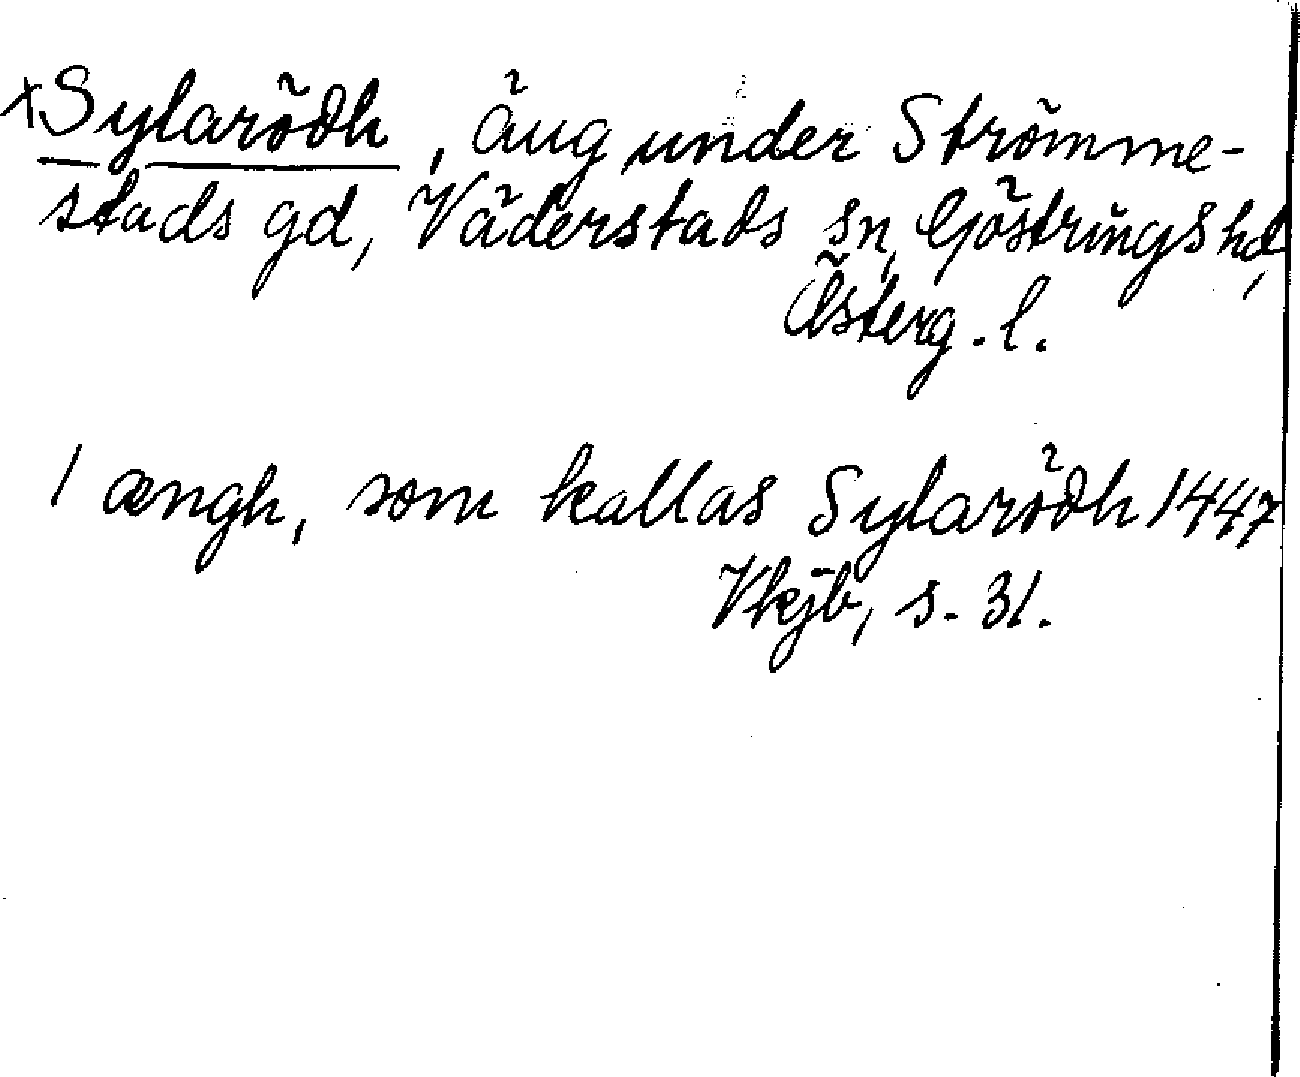 xSylarödh, äng under Strömme-
stads gd, Väderstads sn, Göstrings hd,
Österg. l.
1 ængh, som kallas Sylarödh 1447
Vkjb, s. 31.